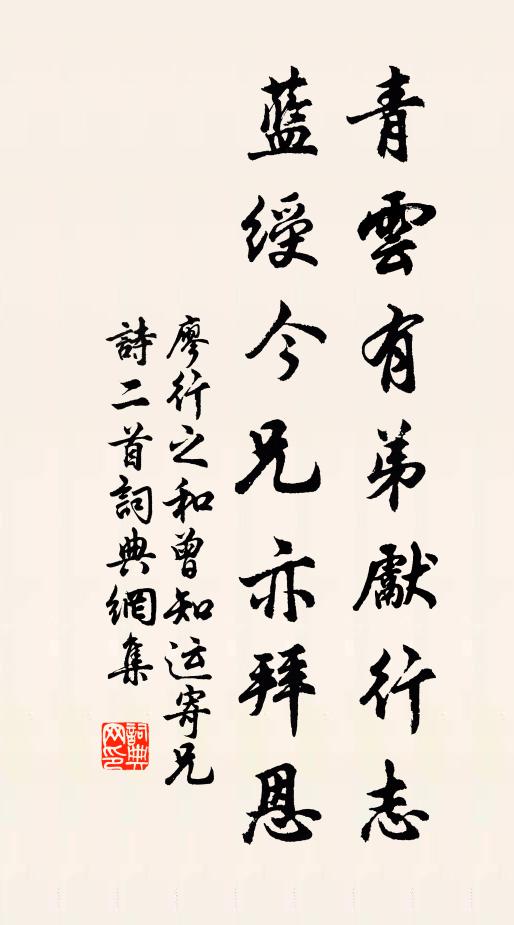 青雲有弟獻行志
藍綬今兄亦拜恩
廖行之和曾知运寄兄
詩二首詞典網集
詞典
网印